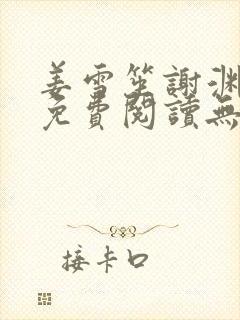 姜雪笙謝淵
免費閱讀無
接卡口